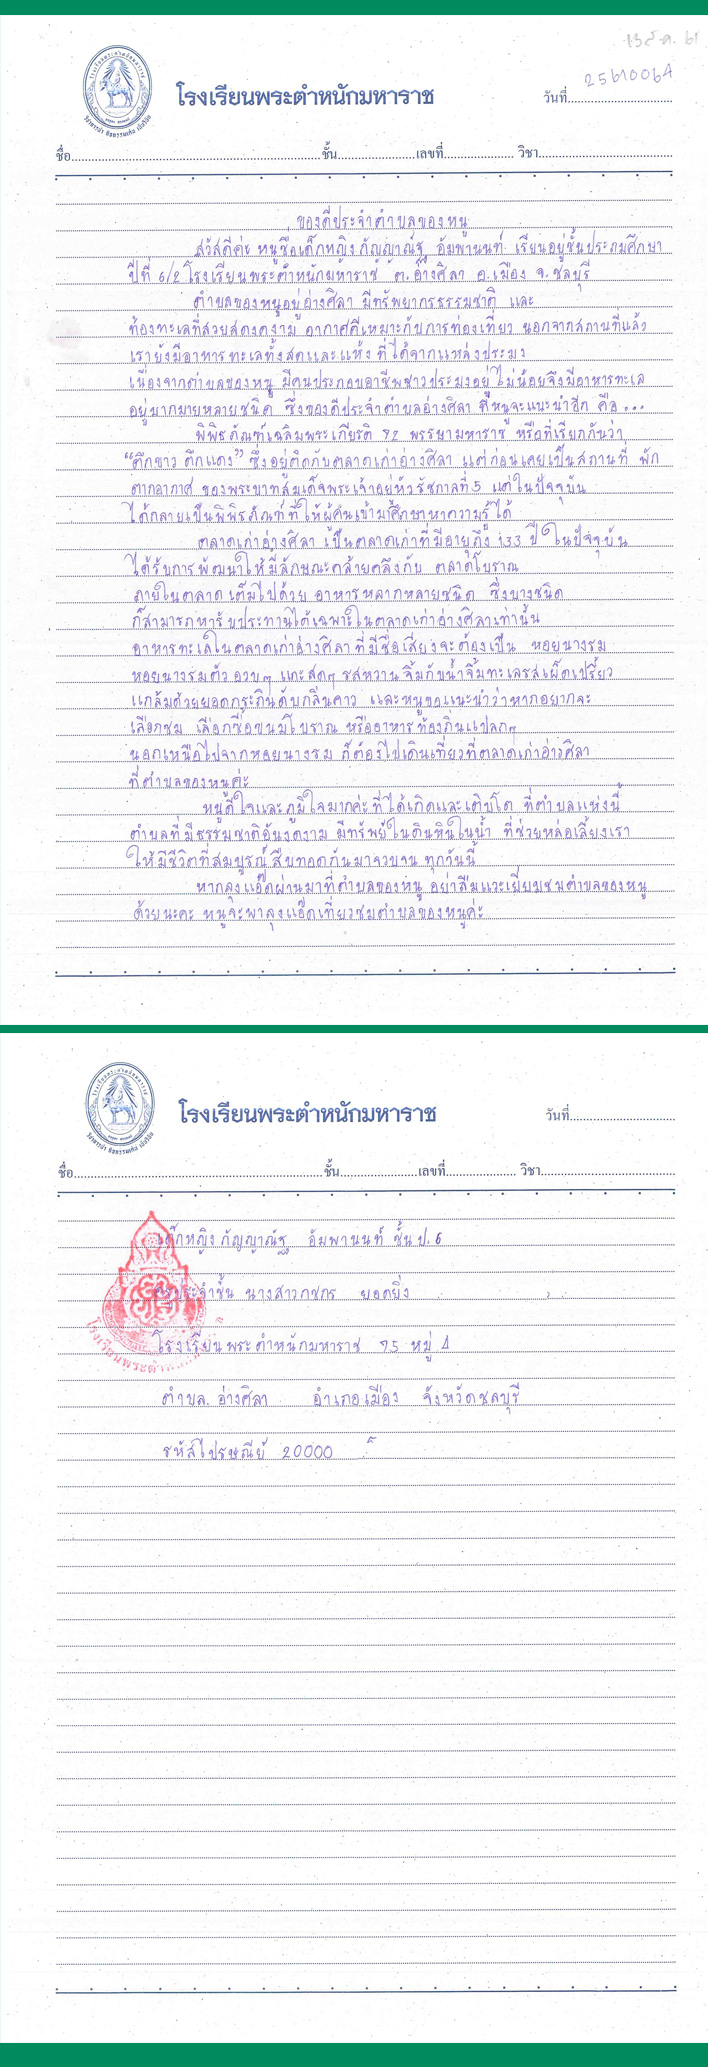 13 ส.ค. 61
โรงเรียนพระตำหนักมหาราช
วันที่ 25610064
ชื่อ ชั้น เลขที่ วิชา
ของดีประจำตำบลของหนู
สวัสดีค่ะ หนูชื่อเด็กหญิง กัญญาณัฐ อัมพานนท์ เรียนอยู่ชั้นประถมศึกษา
ปีที่ 6/2 โรงเรียนพระตำหนักมหาราช ต.อ่างศิลา อ.เมือง จ.ชลบุรี
ตำบลของหนูอยู่อ่างศิลา มีทรัพยากรธรรมชาติ และ
ท้องทะเลที่สวยสดงดงาม อากาศดีเหมาะกับการท่องเที่ยว นอกจากสถานที่แล้ว
เรายังมีอาหารทะเลทั้งสดและแห้ง ที่ได้จากแหล่งประมง
เนื่องจากตำบลของหนู มีคนประกอบอาชีพชาวประมงอยู่ไม่น้อยจึงมีอาหารทะเล
อยู่มากมายหลายชนิด ซึ่งของดีประจำตำบลอ่างศิลา ที่หนูจะแนะนำอีก คือ...
พิพิธภัณฑ์เฉลิมพระเกียรติ 72 พรรษามหาราช หรือที่เรียกกันว่า
"ตึกขาว ตึกแดง" ซึ่งอยู่ติดกับตลาดเก่าอ่างศิลา แต่ก่อนเคยเป็นสถานที่ พัก
ตากอากาศ ของพระบาทสมเด็จพระเจ้าอยู่หัวรัชกาลที่ 5 แต่ในปัจจุบัน
ได้กลายเป็นพิพิธภัณฑ์ที่ให้ผู้คนเข้ามาศึกษาหาความรู้ได้
ตลาดเก่าอ่างศิลา เป็นตลาดเก่าที่มีอายุถึง 133 ปี ในปัจจุบัน
ได้รับการพัฒนาให้มีลักษณะคล้ายคลึงกับ ตลาดโบราณ
ภายในตลาด เต็มไปด้วย อาหารหลากหลายชนิด ซึ่งบางชนิด
ก็สามารถหารับประทานได้เฉพาะในตลาดเก่าอ่างศิลาเท่านั้น
อาหารทะเลในตลาดเก่าอ่างศิลา ที่มีชื่อเสียงจะต้องเป็น หอยนางรม
หอยนางรมตัว อวบๆ และสดๆ รสหวาน จิ้มกับน้ำจิ้มทะเลรสเผ็ดเปรี้ยว
แกล้มด้วยยอดกระถินดับกลิ่นคาว และหนูขอแนะนำว่าหากอยากจะ
เลือกชม เลือกซื้อขนมโบราณ หรืออาหารท้องถิ่นแปลกๆ
นอกเหนือไปจากหอยนางรม ก็ต้องไปเดินเที่ยวที่ตลาดเก่าอ่างศิลา
ที่ตำบลของหนูค่ะ
หนูดีใจและภูมิใจมากค่ะ ที่ได้เกิดและเติบโต ที่ตำบลแห่งนี้
ตำบลที่มีธรรมชาติอันงดงาม มีทรัพย์ในดินหินในน้ำ ที่ช่วยหล่อเลี้ยงเรา
ให้มีชีวิตที่สมบูรณ์ สืบทอดกันมาจวบจน ทุกวันนี้
หากลุงแอ๊ดผ่านมาที่ตำบลของหนู อย่าลืมแวะเยี่ยมชมตำบลของหนู
ด้วยนะคะ หนูจะพาลุงแอ๊ดเที่ยวชมตำบลของหนูค่ะ
โรงเรียนพระตำหนักมหาราช
วันที่
ชื่อ ชั้น เลขที่ วิชา
เด็กหญิง กัญญาณัฐ อัมพานนท์ ชั้น ป.6
ครูประจำชั้น นางสาวกชกร ยอดยิ่ง
โรงเรียน พระตำหนักมหาราช 75 หมู่ 4
ตำบล. อ่างศิลา อำเภอเมือง จังหวัดชลบุรี
รหัสไปรษณีย์ 20000